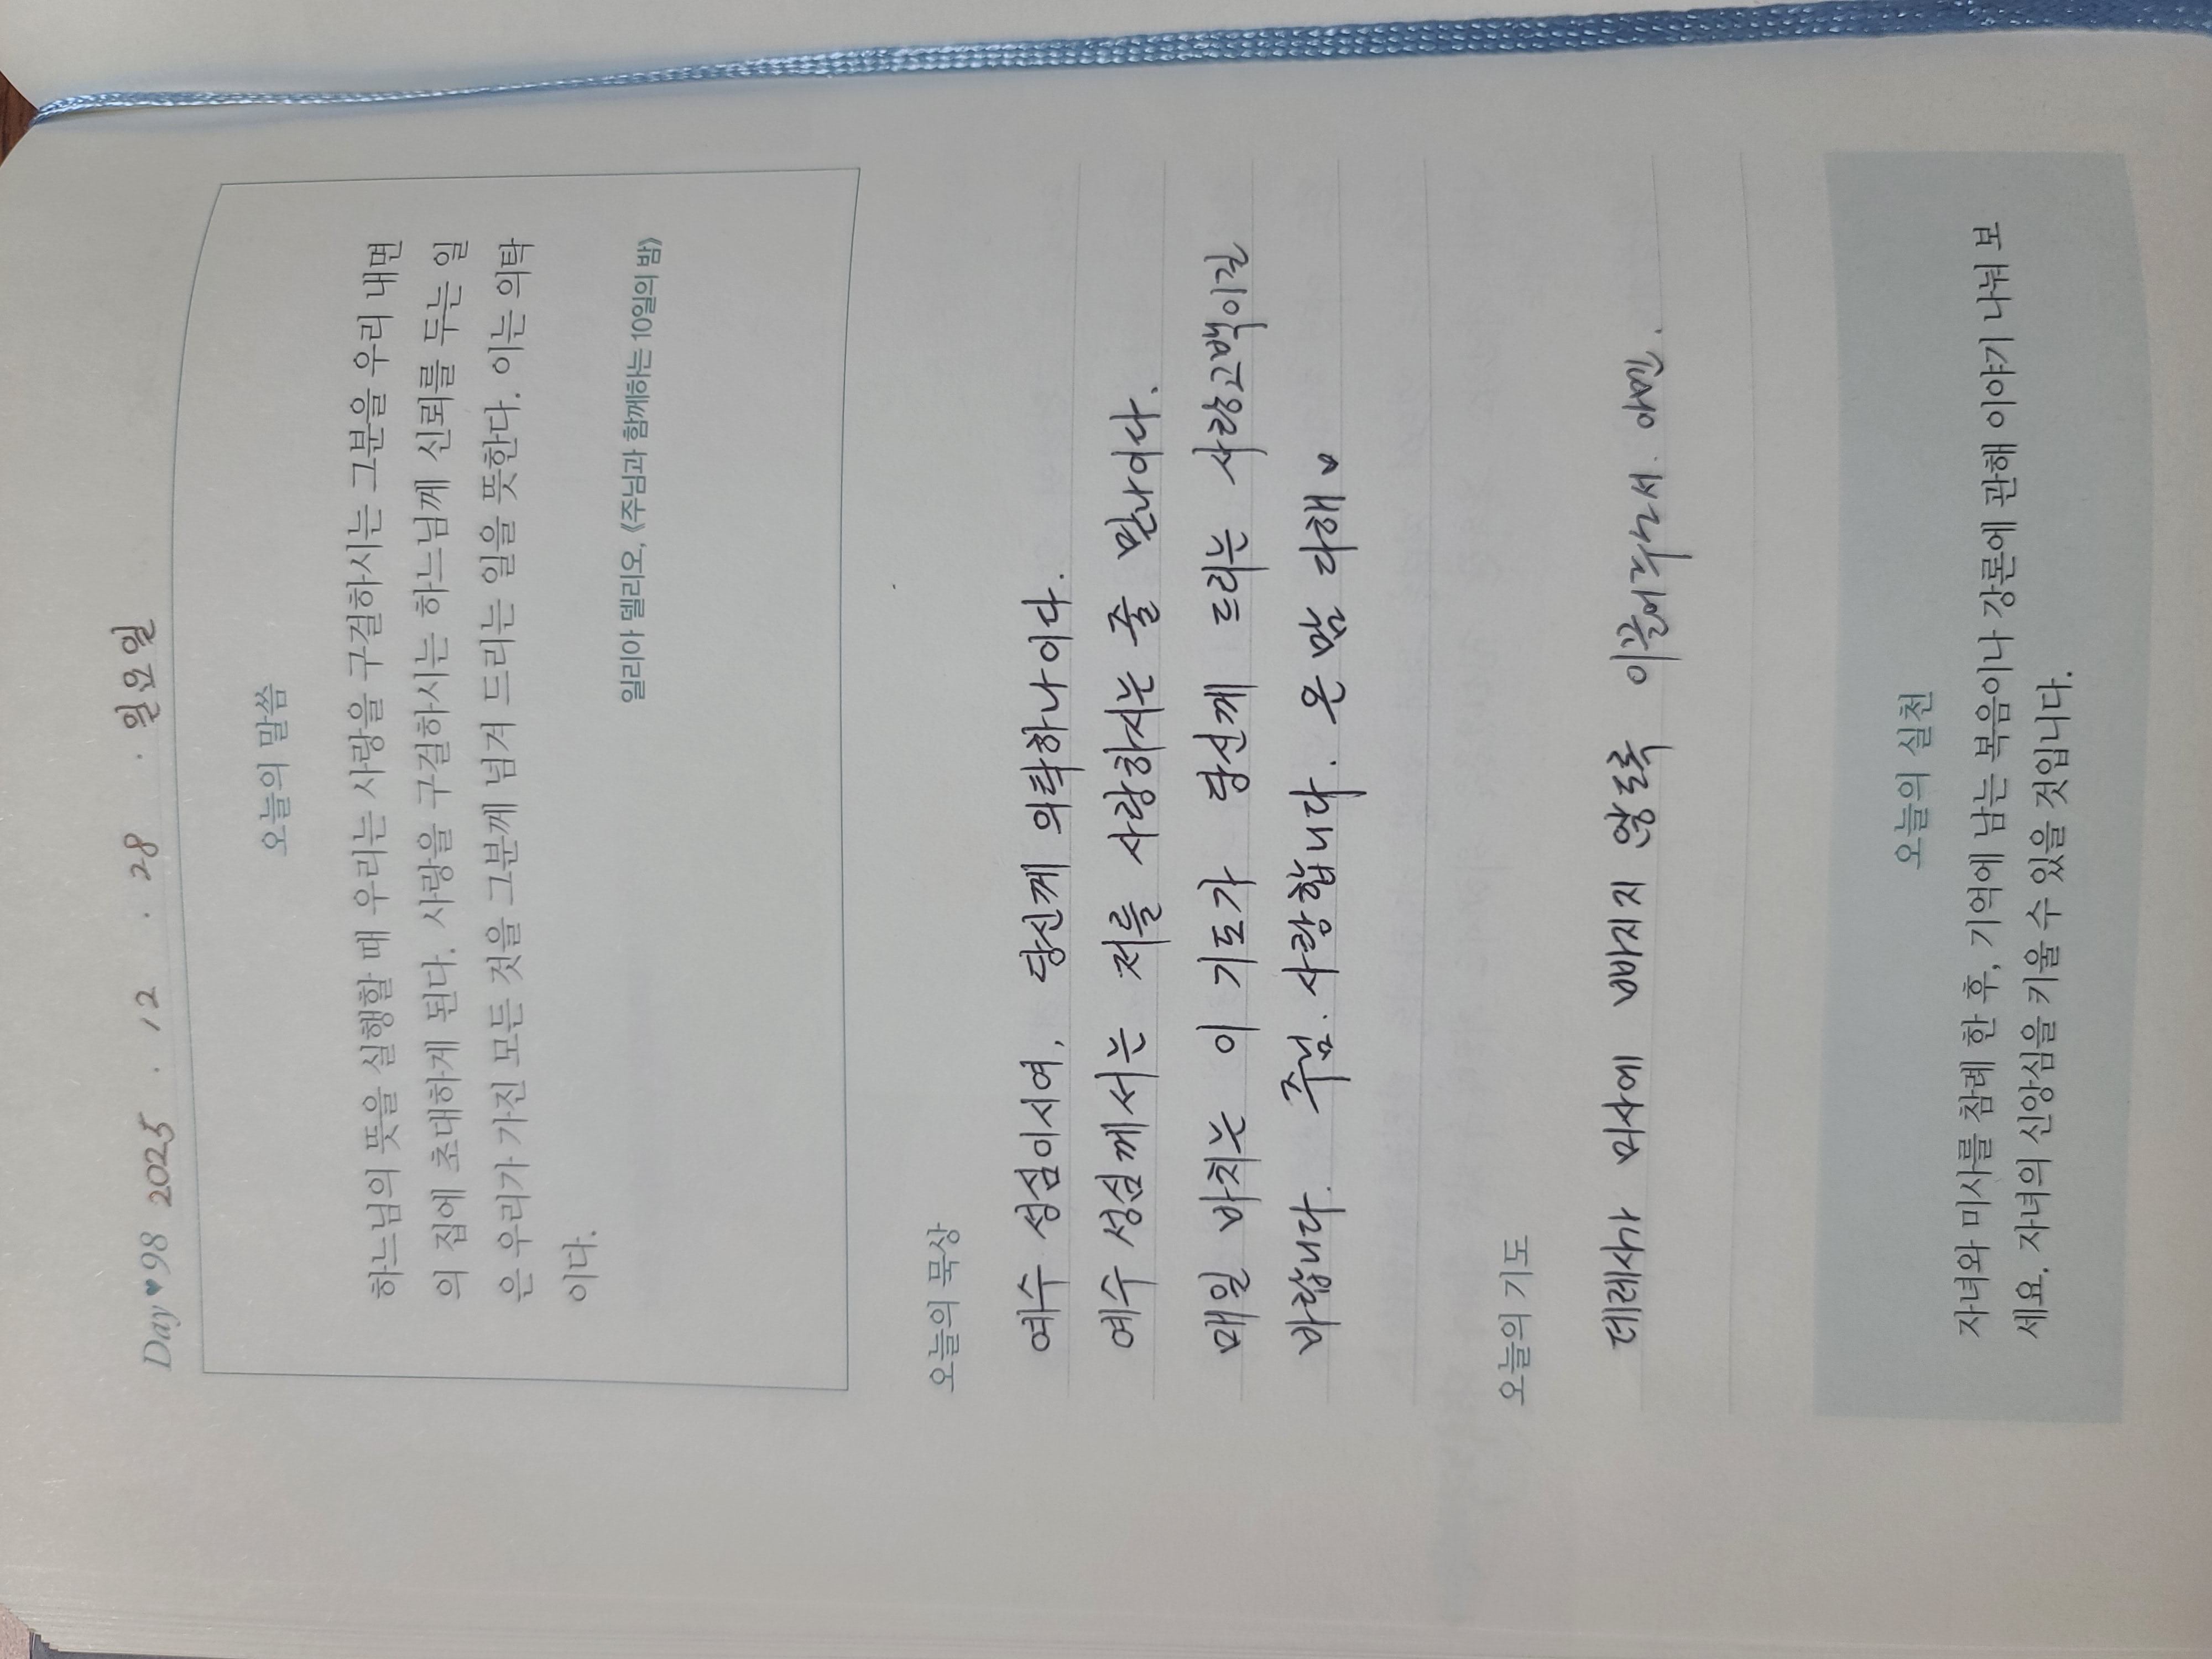 Day♥98 2025 . 12 . 28 . 일요일
오늘의 말씀
하느님의 뜻을 실행할 때 우리는 사랑을 구걸하시는 그분을 우리 내면
의 집에 초대하게 된다. 사랑을 구걸하시는 하느님께 신뢰를 두는 일
은 우리가 가진 모든 것을 그분께 넘겨 드리는 일을 뜻한다. 이는 의탁
이다.
일리아 델리오, 《주님과 함께하는 10일의 밤》
오늘의 묵상
예수 성심이시여, 당신께 의탁하나이다.
예수 성심께서는 저를 사랑하시는 줄 믿나이다.
매일 바치는 이 기도가 당신께 드리는 사랑고백이길
바랍니다. 주님. 사랑합니다. 온 맘 다해♥
오늘의 기도
데레사가 미사에 빠지지 않도록 이끌어주소서. 아멘.
오늘의 실천
자녀와 미사를 참례 한 후, 기억에 남는 복음이나 강론에 관해 이야기 나눠 보
세요. 자녀의 신앙심을 키울 수 있을 것입니다.